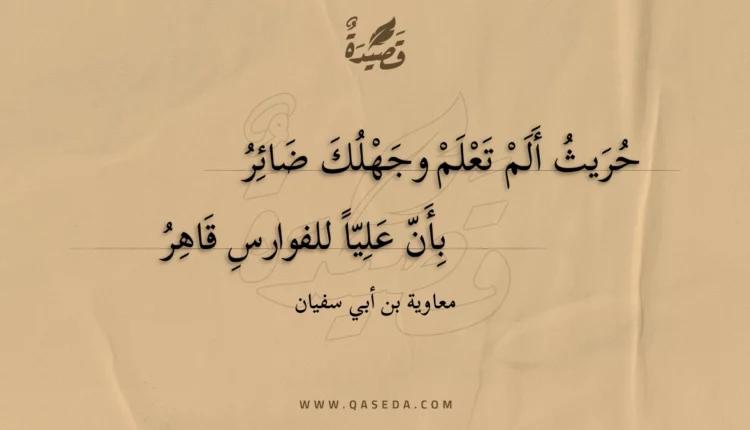 قَصِيْدَةٌ
حُرَيثُ أَلَمْ تَعْلَمْ وجَهْلُكَ ضَائِرُ
بِأَنّ عَلِيّاً للفوارسِ قَاهِرُ
معاوية بن أبي سفيان
WWW.QASEDA.COM